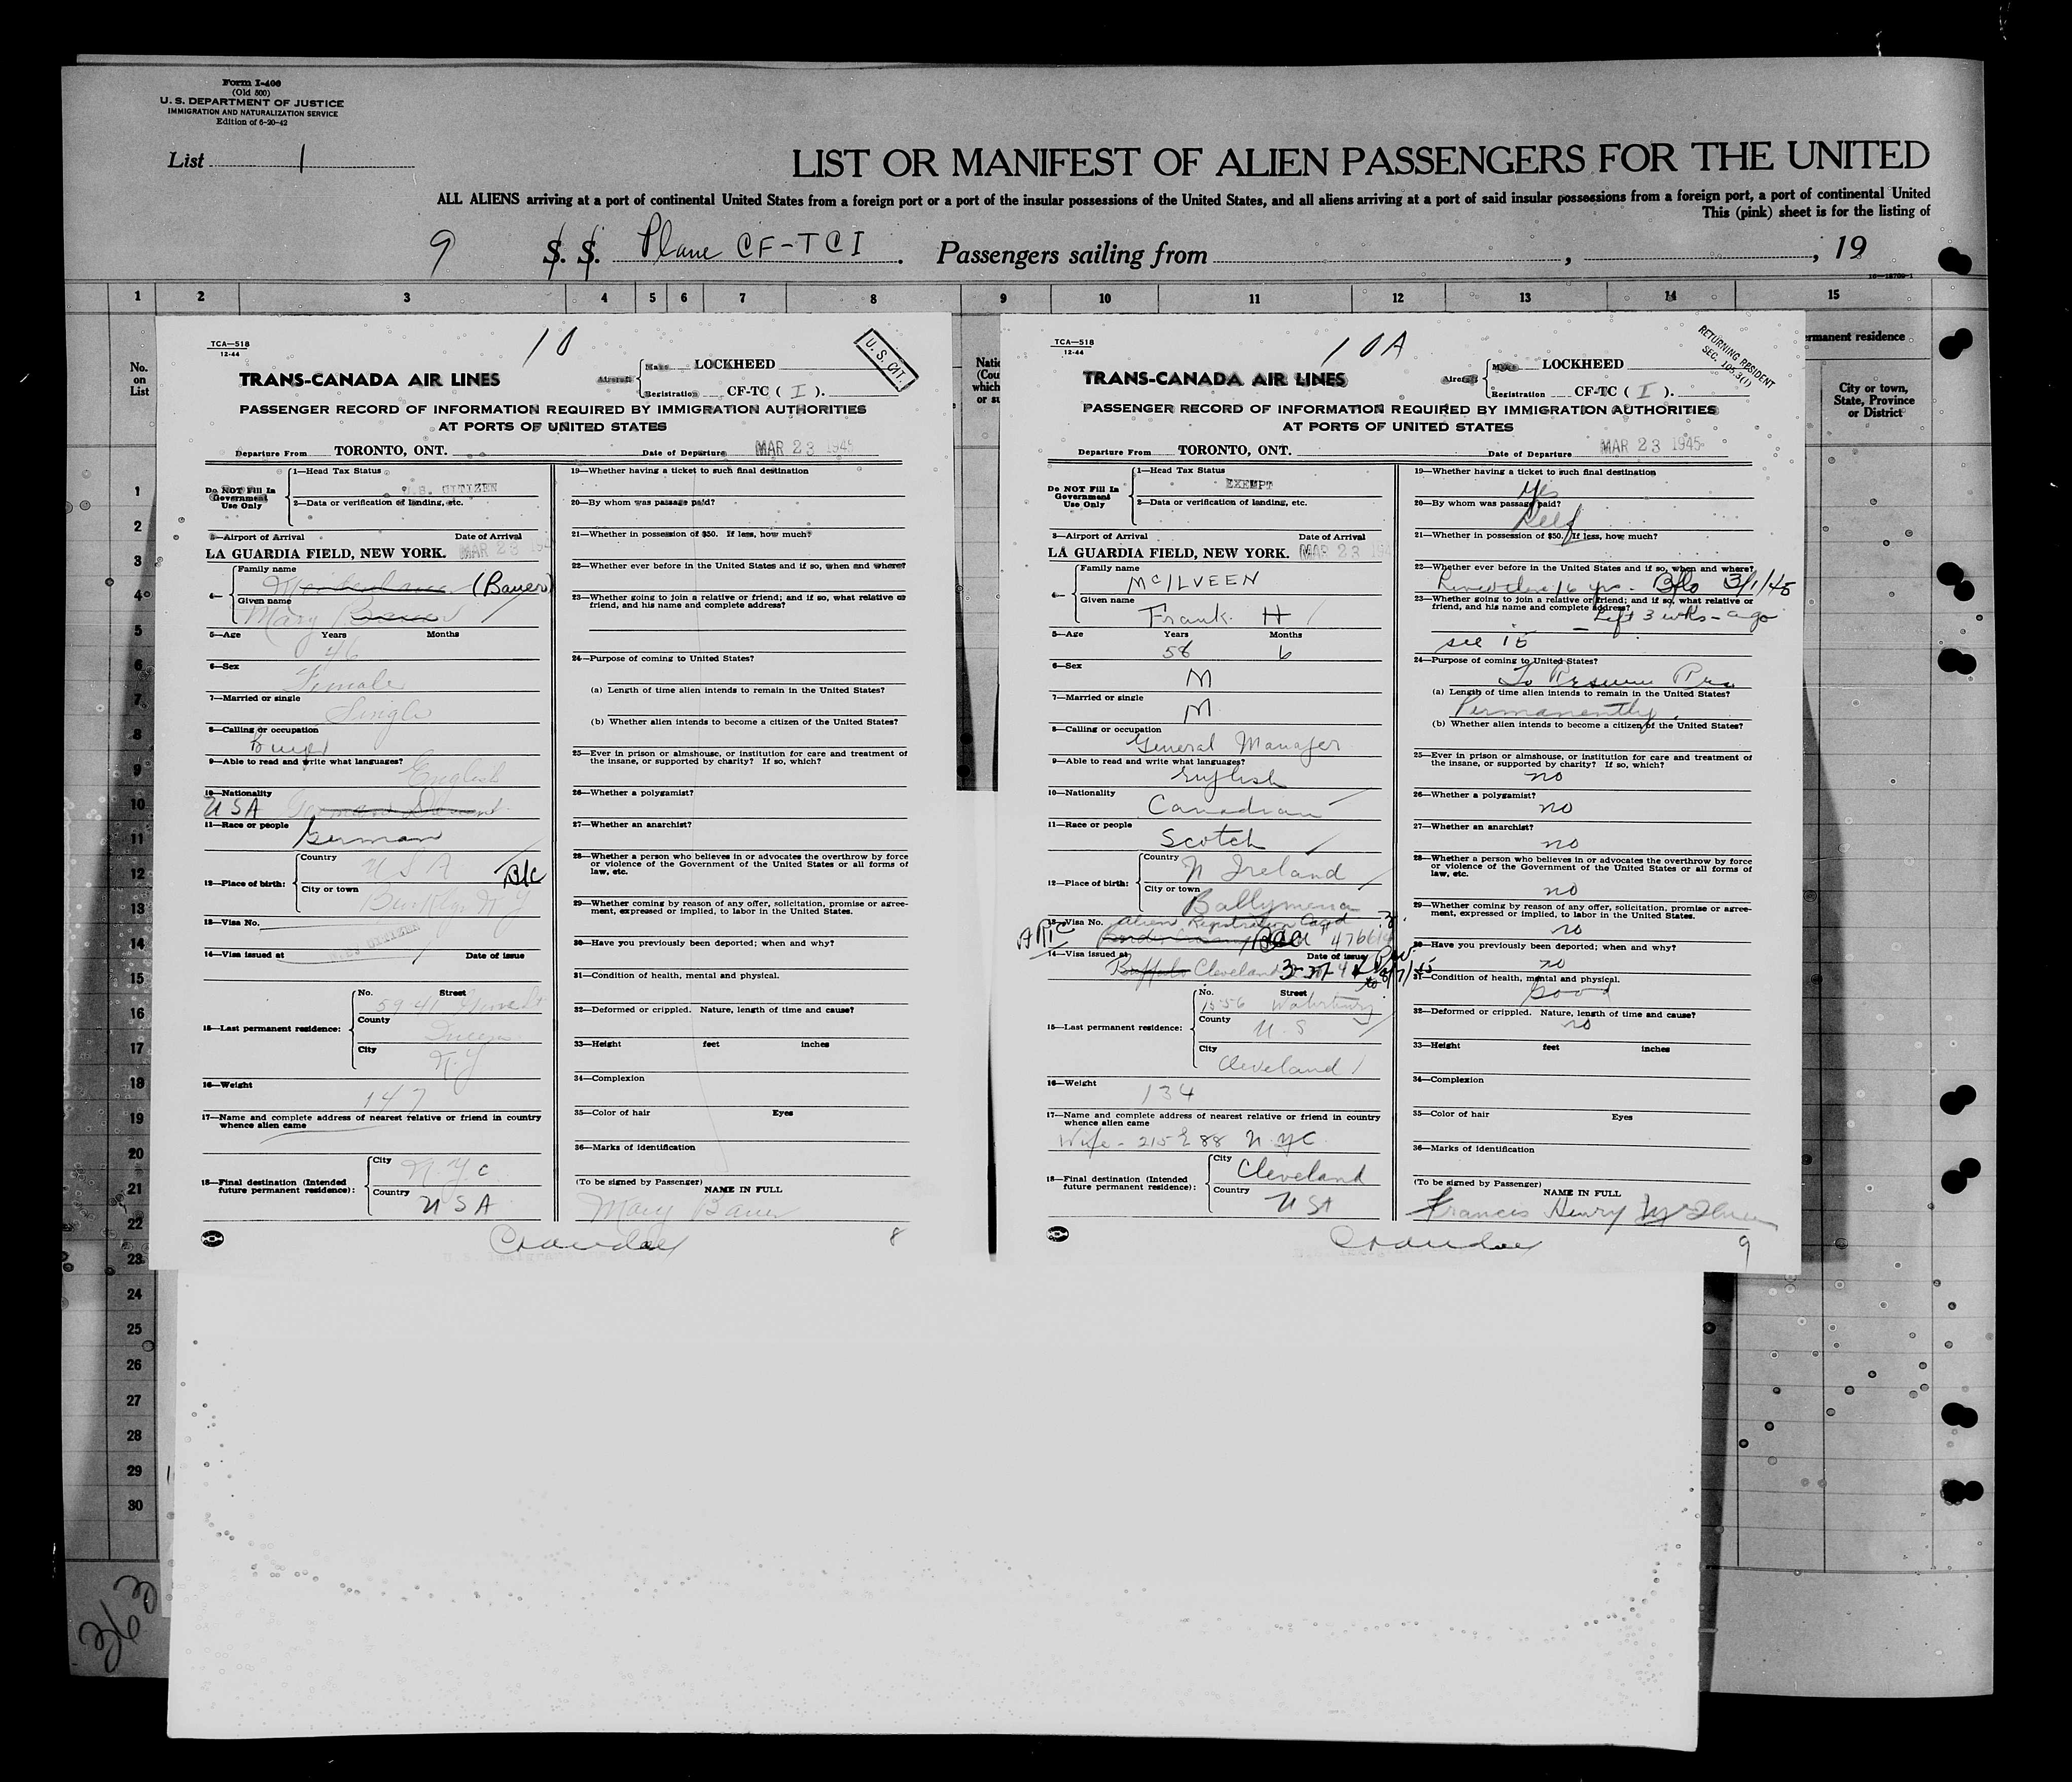 Form I-400
(Old 500)
U. S. DEPARTMENT OF JUSTICE
IMMIGRATION AND NATURALIZATION SERVICE
Edition of 6-20-42
List 1
LIST OR MANIFEST OF ALIEN PASSENGERS FOR THE UNITED
ALL ALIENS arriving at a port of continental United States from a foreign port or a port of the insular possessions of the United States, and all aliens arriving at a port of said insular possessions from a foreign port, a port of continental United
This (pink) sheet is for the listing of
9 S. S. Plane CF-TCI. Passengers sailing from , , 19
1 2 3 4 5 6 7 8 9 10 11 12 13 14 15
No.
on
List
rmanent residence
City or town,
State, Province
or District
1
2
3
4
5
6
7
8
9
10
11
12
13
14
15
16
17
18
19
20
21
22
23
24
25
26
27
28
29
30
363
TCA—518
12-44
10
U. S. CIT.
TRANS-CANADA AIR LINES
Aircraft
Make LOCKHEED
Registration CF-TC ( I ).
PASSENGER RECORD OF INFORMATION REQUIRED BY IMMIGRATION AUTHORITIES
AT PORTS OF UNITED STATES
Departure From TORONTO, ONT. Date of Departure MAR 23 1945
Do NOT Fill In
Government
Use Only
1—Head Tax Status
U.S. CITIZEN
2—Data or verification of landing, etc.
3—Airport of Arrival Date of Arrival
LA GUARDIA FIELD, NEW YORK. MAR 23 194
4—
Family name
(Bauer)
Given name
Mary Bauer
5—Age Years Months
46
6—Sex
Female
7—Married or single
Single
8—Calling or occupation
Buyer
9—Able to read and write what languages?
English
10—Nationality
USA
11—Race or people
German
12—Place of birth:
Country
USA B/C
City or town
N Y
13—Visa No.
U.S. CITIZEN
14—Visa issued at Date of issue
15—Last permanent residence:
No. Street
59 41
County
Queens
City
N.Y
16—Weight
147
17—Name and complete address of nearest relative or friend in country
whence alien came
18—Final destination (Intended
future permanent residence):
City
N.Y.C
Country
USA
19—Whether having a ticket to such final destination
20—By whom was passage paid?
21—Whether in possession of $50. If less, how much?
22—Whether ever before in the United States and if so, when and where?
23—Whether going to join a relative or friend; and if so, what relative or
friend, and his name and complete address?
24—Purpose of coming to United States?
(a) Length of time alien intends to remain in the United States?
(b) Whether alien intends to become a citizen of the United States?
25—Ever in prison or almshouse, or institution for care and treatment of
the insane, or supported by charity? If so, which?
26—Whether a polygamist?
27—Whether an anarchist?
28—Whether a person who believes in or advocates the overthrow by force
or violence of the Government of the United States or all forms of
law, etc.
29—Whether coming by reason of any offer, solicitation, promise or agree-
ment, expressed or implied, to labor in the United States.
30—Have you previously been deported; when and why?
31—Condition of health, mental and physical.
32—Deformed or crippled. Nature, length of time and cause?
33—Height feet inches
34—Complexion
35—Color of hair Eyes
36—Marks of identification
(To be signed by Passenger)
NAME IN FULL
Mary Bauer
8
TCA—518
12-44
10A
RETURNING RESIDENT
SEC. 105.3(1)
TRANS-CANADA AIR LINES
Aircraft
Make LOCKHEED
Registration CF-TC ( I ).
PASSENGER RECORD OF INFORMATION REQUIRED BY IMMIGRATION AUTHORITIES
AT PORTS OF UNITED STATES
Departure From TORONTO, ONT. Date of Departure MAR 23 1945
Do NOT Fill In
Government
Use Only
1—Head Tax Status
EXEMPT
2—Data or verification of landing, etc.
3—Airport of Arrival Date of Arrival
LA GUARDIA FIELD, NEW YORK. MAR 23 194
4—
Family name
McILVEEN
Given name
Frank H
5—Age Years Months
58 6
6—Sex
M
7—Married or single
M
8—Calling or occupation
General Manager
9—Able to read and write what languages?
English
10—Nationality
Canadian
11—Race or people
Scotch
12—Place of birth:
Country
N Ireland
City or town
Ballymena
13—Visa No. Alien Registration Card
14—Visa issued at Date of issue
Buffalo Cleveland
15—Last permanent residence:
No. Street
1556 Waterbury
County
U.S
City
Cleveland
16—Weight
134
17—Name and complete address of nearest relative or friend in country
whence alien came
Wife - 215 E 88 N.Y.C.
18—Final destination (Intended
future permanent residence):
City
Cleveland
Country
USA
19—Whether having a ticket to such final destination
Yes
20—By whom was passage paid?
Self
21—Whether in possession of $50. If less, how much?
22—Whether ever before in the United States and if so, when and where?
16 yrs. Bflo 3/1/45
23—Whether going to join a relative or friend; and if so, what relative or
friend, and his name and complete address?
Left 3 wks - ago
see 15
24—Purpose of coming to United States?
To Resume Res
(a) Length of time alien intends to remain in the United States?
Permanently.
(b) Whether alien intends to become a citizen of the United States?
25—Ever in prison or almshouse, or institution for care and treatment of
the insane, or supported by charity? If so, which?
no
26—Whether a polygamist?
no
27—Whether an anarchist?
no
28—Whether a person who believes in or advocates the overthrow by force
or violence of the Government of the United States or all forms of
law, etc.
no
29—Whether coming by reason of any offer, solicitation, promise or agree-
ment, expressed or implied, to labor in the United States.
no
30—Have you previously been deported; when and why?
no
31—Condition of health, mental and physical.
Good
32—Deformed or crippled. Nature, length of time and cause?
no
33—Height feet inches
34—Complexion
35—Color of hair Eyes
36—Marks of identification
(To be signed by Passenger)
NAME IN FULL
Francis Henry McIlveen
9